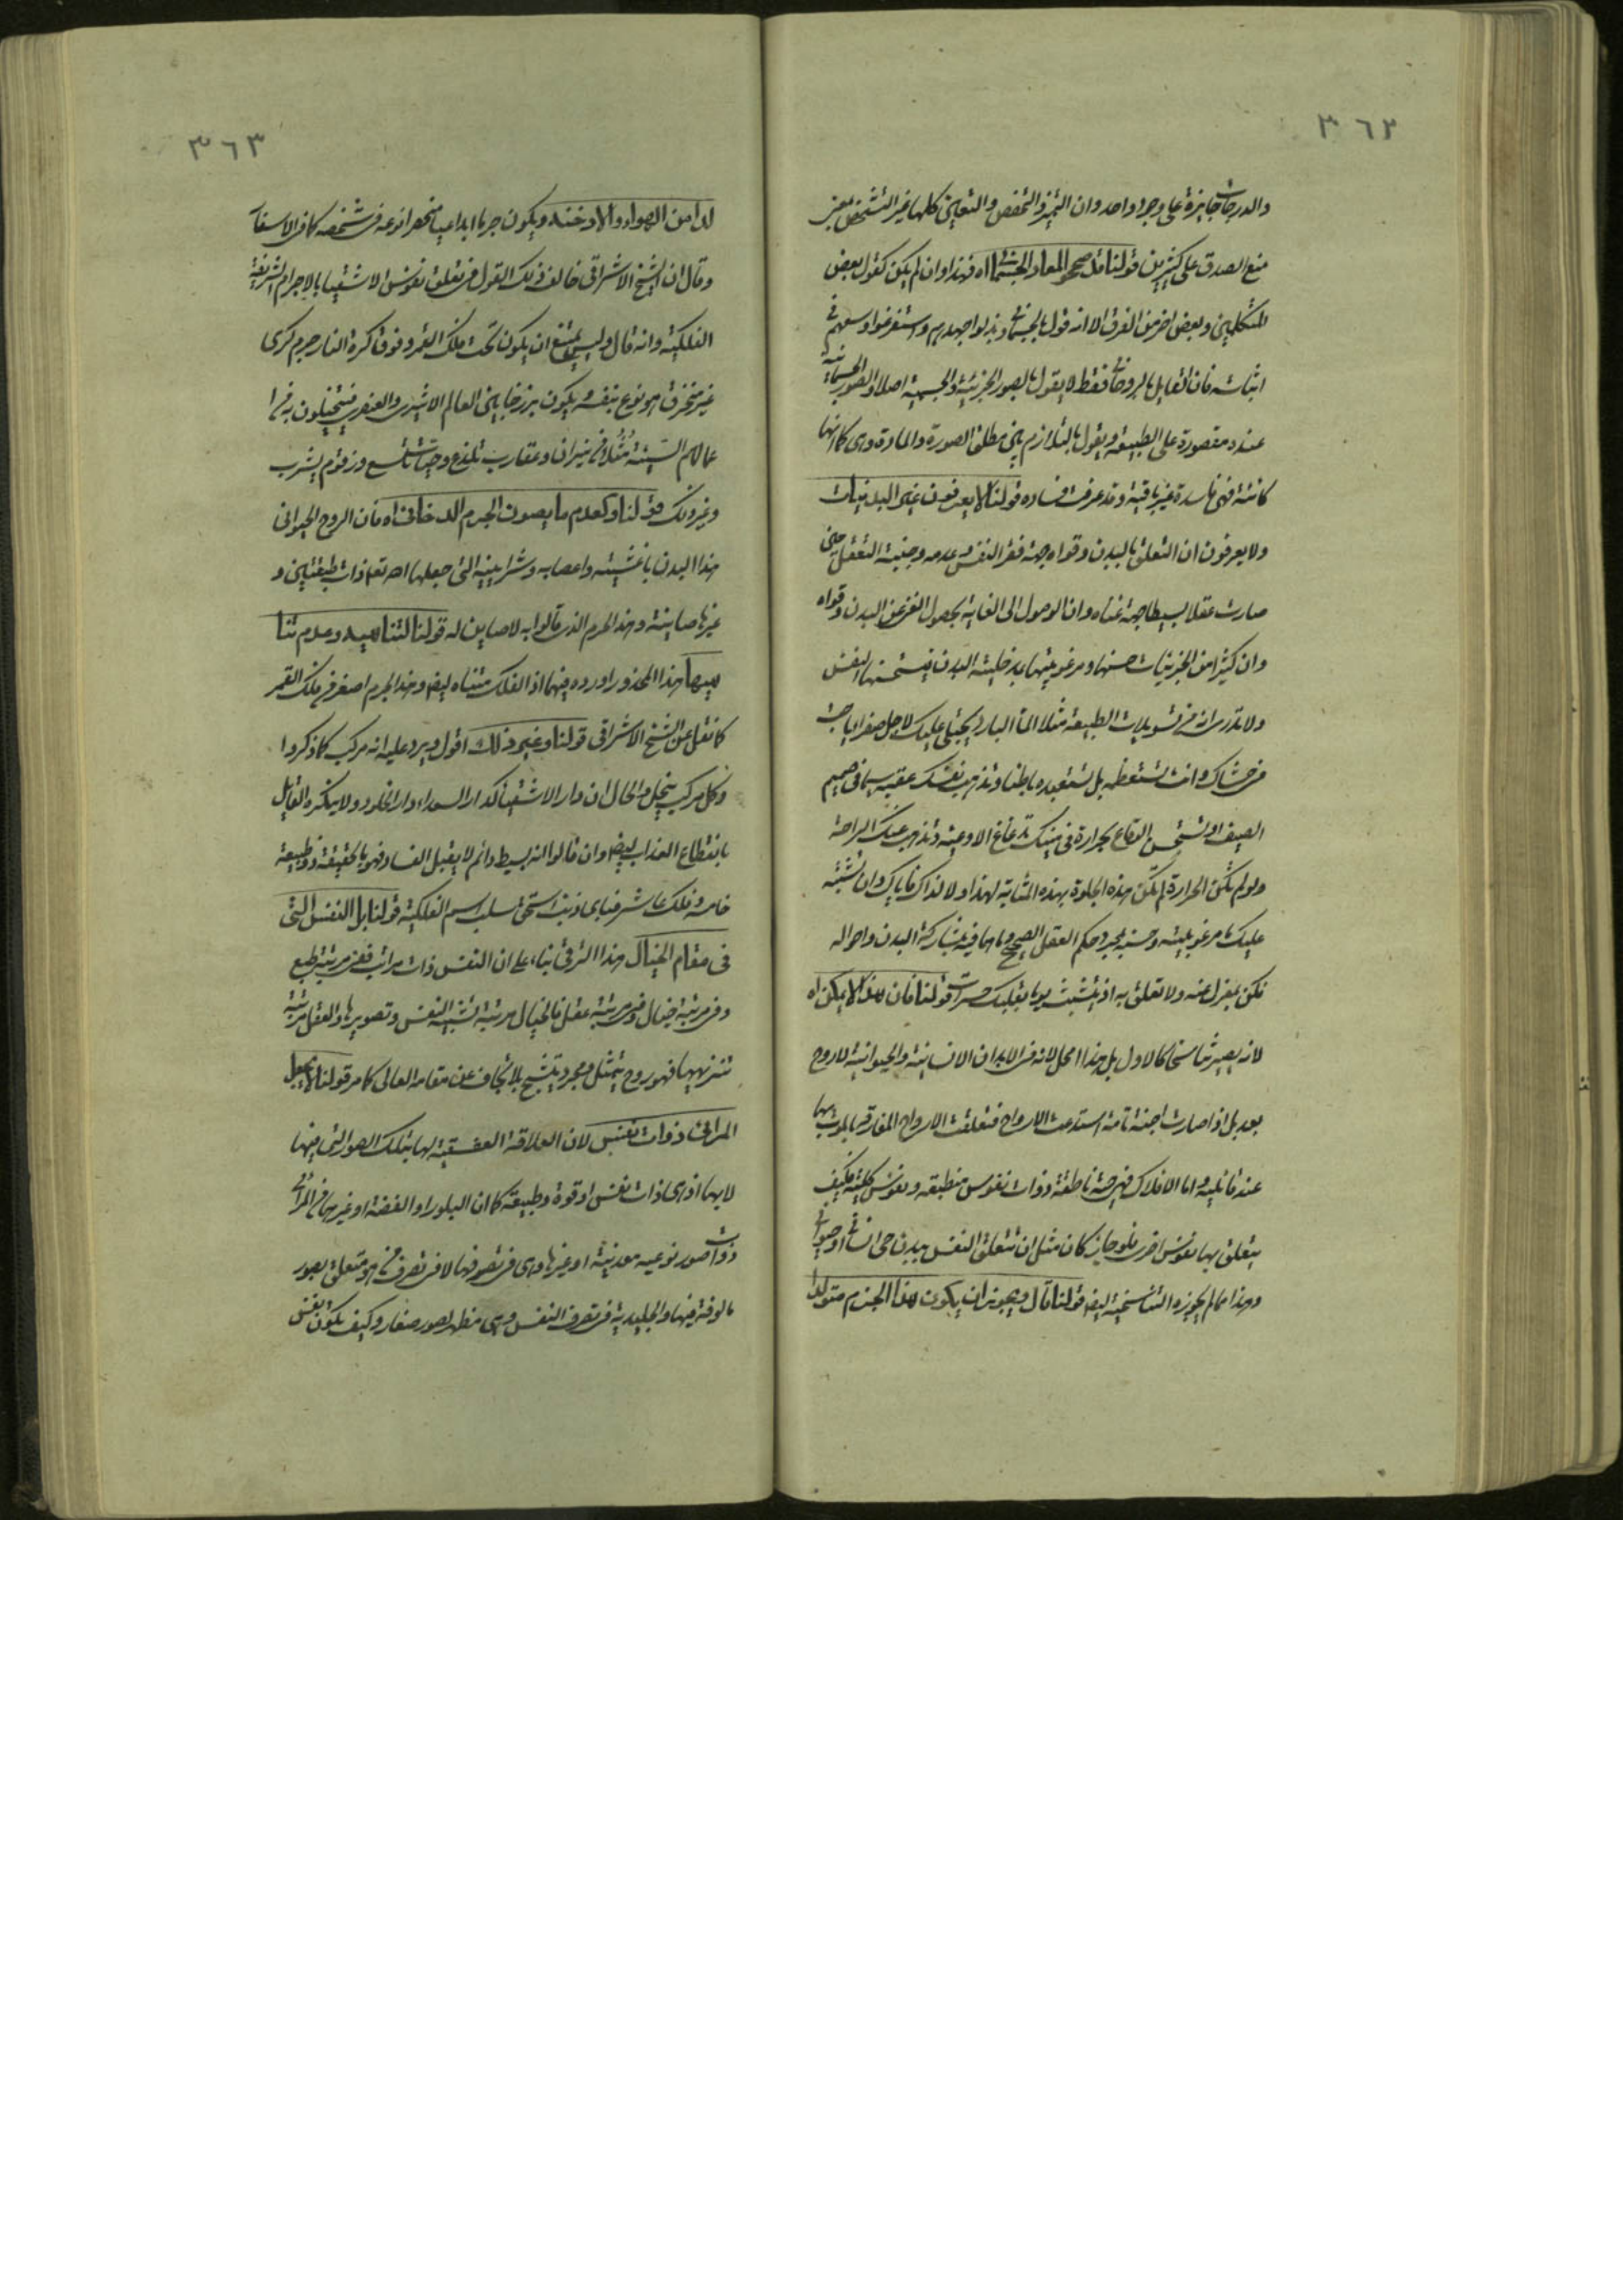 ٣٦٢
والدرجات جايزة على وجود واحد وان التميز والتخصص والتعين كلها غير التشخص بمعنى
منع الصدق على كثيرين قولنا قد صححوا المعاد الجسمانى اه فهذا وان لم يكن كقول بعض
المتكلمين وبعض اخر من الفرق الا انه قول بالجسمانى وبذلوا جهدهم واستفرغوا وسعهم فى
اثباته فان القايل بالروحانى فقط لا يقول بالصور الجزئية والجسمية اصلا والصور الجسمانية
عنده مقصورة على الطبيعية ويقول بالتلازم بين مطلق الصورة والمادة وهى كما انها
كائنة فهى فاسدة غير باقية وقد عرفت فساده قولنا لا يعرفون غير البدنيات
ولا يعرفون ان التعلق بالبدن وقواه جهة فقر النفس وعدمه وجنبة التعقل حين
صارت عقلا بسيطا جهة غناه وان الوصول الى الغاية بحصول الغنى عن البدن وقواه
وان كثيرا من الجزئيات حسنها ومرغوبيتها بدخلية البدن فيستحسنها النفس
ولا تدرى انه من تسويلات الطبيعة مثلا الماء البارد يتجلى عليك لاجل صفراء هاجت
من حشاك وانت تستعظمه بل تستعبده باطنا وتذهب نفسك عقيبه سيما فى صميم
الصيف او تستحسن البقاع بحرارة فى منيك تدغدغ الاوعية وتذهب عنك الراحة
ولو لم تكن الحرارة لم تكن هذه الجلوة بهذه المثابة لهذا ولا لذاك فاياك وان تشتبه
عليك ما مرغوبيته وحسنه بمجرد حكم العقل الصحيح وما هما فيه بمشاركة البدن واحواله
فكن بمعزل عنه ولا تعلق به اذ يتشبث يوما بقلبك حسرات قولنا فان هذا لا يمكن اه
لانه يصير تناسخا كالاول بل هذا امحل لانه فى الابدان الانسانية والحيوانية لا روح
بعد بل اذا صارت اجنة تامة استدعت الارواح فتعلقت الارواح المفارقة بالموت بها
عند قائليه واما الافلاك فهى حية ناطقة ذوات نفوس منطبقه ونفوس كلية فكيف
يتعلق بها نفوس اخرى فلو جاز كان مثل ان تتعلق النفس ببدن حى انسانى او حيوانى
وهذا مما لم يجوزه التناسخية ايضا قولنا قال ويجوز ان يكون هذا الجرم متولدا
٣٦٣
لدا من الهواء والادخنة ويكون جرما ابداعيا منحصرا نوعه فى شخصه كما فى الاسفار
وقال ان الشيخ الاشراقى خالف ذلك القول فى تعلق نفوس الاشقياء بالاجرام الشريفة
الفلكية وانه قال وليس بممتنع ان يكون تحت فلك القمر وفوق كرة النار جرم كرى
غير منخرق هو نوع بنفسه ويكون برزخا بين العالم الاثيرى والعنصرى فيتخيلون به من ا
عمالهم السيئة مُثُلا فى نيران وعقارب تلدغ وحيات تلسع وزقوم يشرب
وغير ذلك قولنا وكعدم ما يصون الجرم الدخانى اه فان الروح الحيوانى
هذا البدن باغشيته واعصابه وشرايينه التى جعلها الله تعالى ذات طبقتين و
غيرها صاينة وهذا الجرم الذى قالوا به لا صاين له قولنا لتناهيه وعدم تنا
هيها هذا المحذور اورده فيهما اذ الفلك متناه ايضا وهذا الجرم اصغر من فلك القمر
كما نقل عن الشيخ الاشراقى قولنا وغير ذلك اقول ويرد عليه انه مركب كما ذكروا
وكل مركب ينحل والحال ان دار الاشقياء كدار السعداء دار الخلود ولا ينكره القايل
بانقطاع العذاب ايضا وان قالوا انه بسيط دائم لا يقبل الفساد فهو بالحقيقة ذو طبيعة
خامسة وفلك عاشر فباى ذنب استحق سلب اسم الفلكية قولنا بل النفس التى
فى مقام الخيال هذا الترقى بناء على ان النفس ذات مراتب ففى مرتبة طبع
وفى مرتبة خيال وفى مرتبة عقل فالخيال مرتبة تشبيه النفس وتصويرها والعقل مرتبة
تنزيهها فهو روح يتمثل ومجرد يتشبح بلا تجاف عن مقامه العالى كما مر قولنا لا يجعل
المرائى ذوات نفس لان العلاقة العشقية لها بتلك الصور التى فيها
لا بها اذ هى ذات نفس او قوة وطبيعة كما ان البلور او الفضة او غيرهما فى المرائى
ذوات صور نوعيه معدنية او غيرها وهى فى تصرفها لا فى تصرف من هو متعلق بصور
مالوفة فيها والجليدية فى تصرف النفس وهى مظهر لصور صغار وكيف يكون نفس